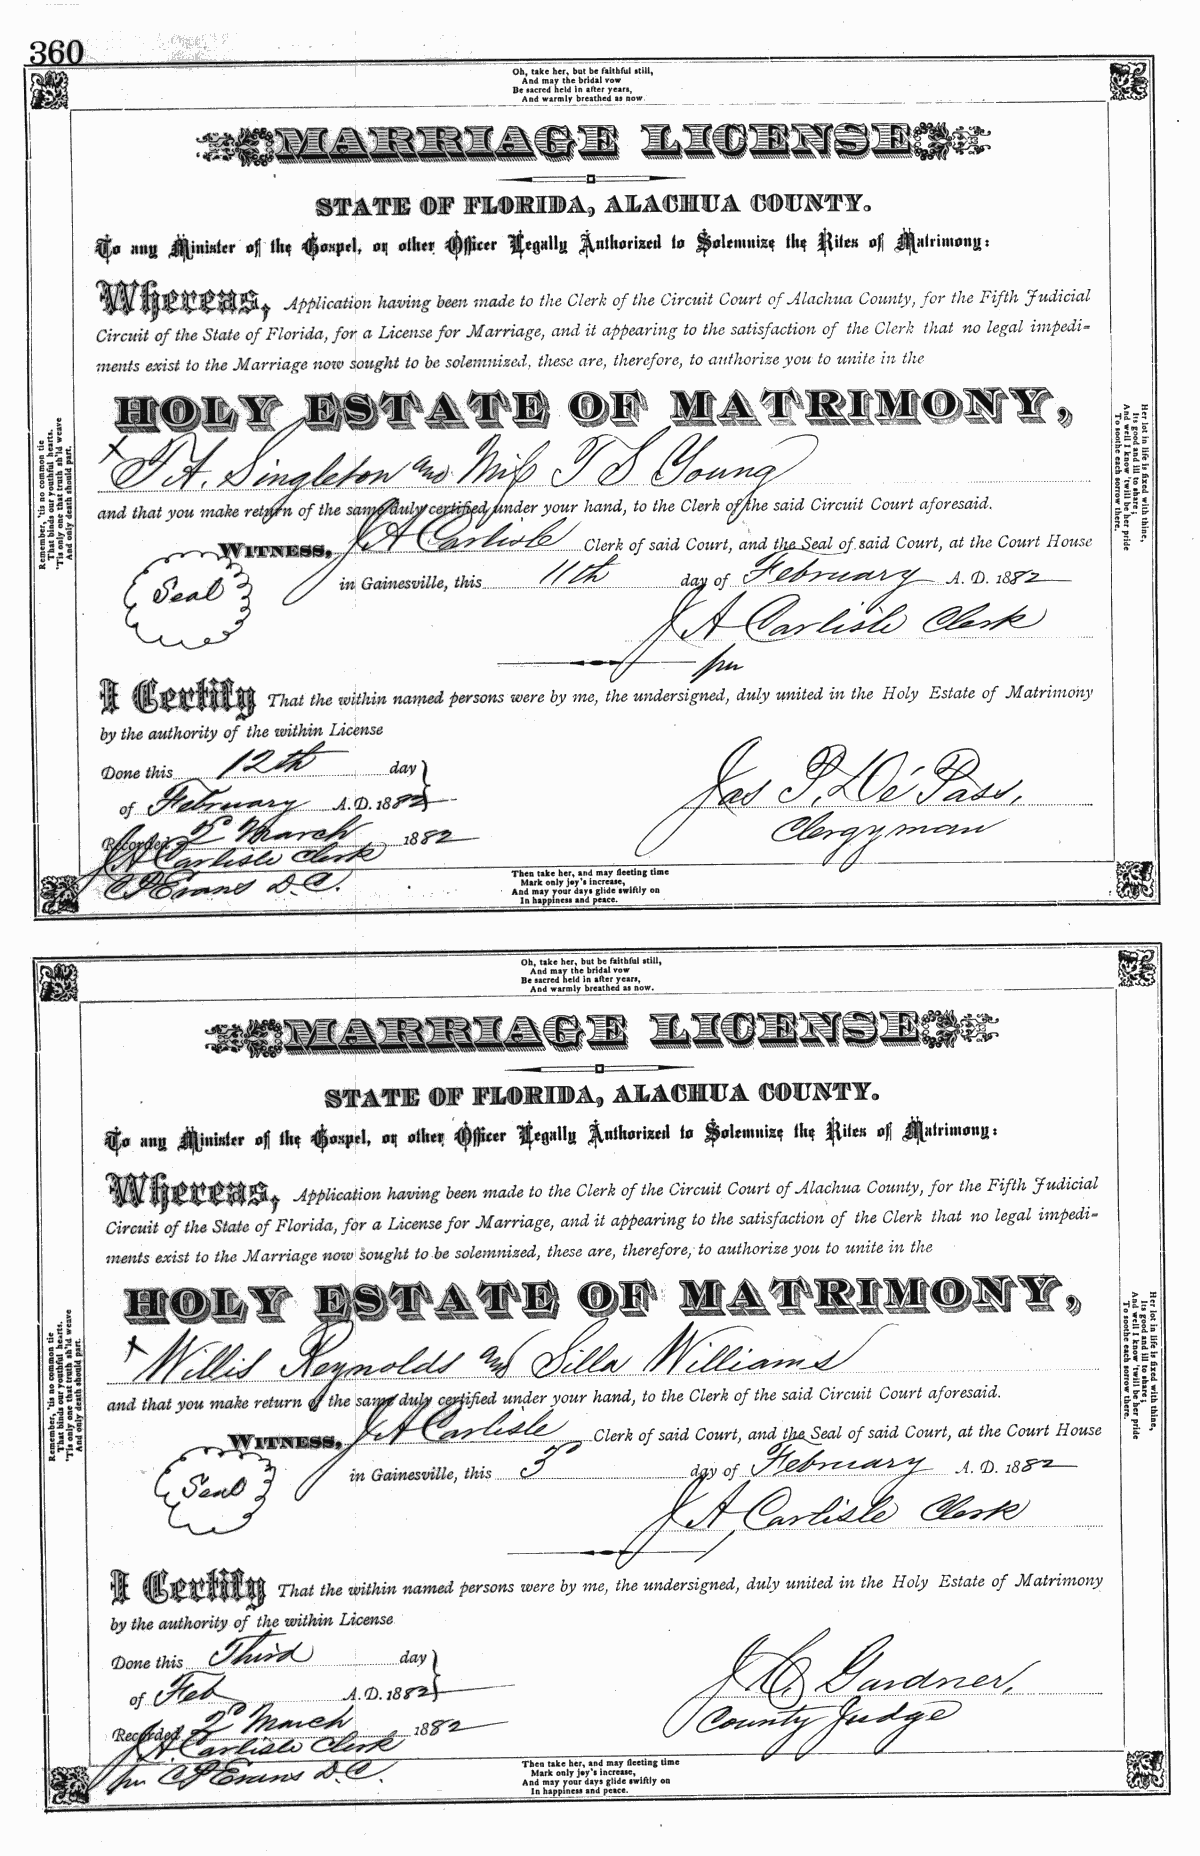 360
Oh, take her, but be faithful still,
And may the bridal vow
Be sacred held in after years,
And warmly breathed as now.
MARRIAGE LICENSE
STATE OF FLORIDA, ALACHUA COUNTY.
To any Minister of the Gospel, or other Officer Legally Authorized to Solemnize the Rites of Matrimony:
Whereas, Application having been made to the Clerk of the Circuit Court of Alachua County, for the Fifth Judicial
Circuit of the State of Florida, for a License for Marriage, and it appearing to the satisfaction of the Clerk that no legal impedi=
ments exist to the Marriage now sought to be solemnized, these are, therefore, to authorize you to unite in the
HOLY ESTATE OF MATRIMONY,
x
Singleton and Miss T S Young
and that you make return of the same duly certified under your hand, to the Clerk of the said Circuit Court aforesaid.
WITNESS, J A Carlisle Clerk of said Court, and the Seal of said Court, at the Court House
Seal
in Gainesville, this 11th day of February A. D. 1882
J A Carlisle Clerk
per
I Certify That the within named persons were by me, the undersigned, duly united in the Holy Estate of Matrimony
by the authority of the within License
Done this 12th day
of February A.D. 1882
Jas P. De Pass,
Clergyman
Recorded 2d March 1882
J A Carlisle Clerk
C P Evans D.C.
Remember, 'tis no common tie
That binds our youthful hearts,
'Tis only one that truth sh'ld weave
And only death should part.
Her lot in life is fixed with thine,
Its good and ill to share;
And well I know 'twill be her pride
To soothe each sorrow there.
Then take her, and may fleeting time
Mark only joy's increase,
And may your days glide swiftly on
In happiness and peace.
Oh, take her, but be faithful still,
And may the bridal vow
Be sacred held in after years,
And warmly breathed as now.
MARRIAGE LICENSE
STATE OF FLORIDA, ALACHUA COUNTY.
To any Minister of the Gospel, or other Officer Legally Authorized to Solemnize the Rites of Matrimony:
Whereas, Application having been made to the Clerk of the Circuit Court of Alachua County, for the Fifth Judicial
Circuit of the State of Florida, for a License for Marriage, and it appearing to the satisfaction of the Clerk that no legal impedi=
ments exist to the Marriage now sought to be solemnized, these are, therefore, to authorize you to unite in the
HOLY ESTATE OF MATRIMONY,
x
Willis Reynolds and Silla Williams
and that you make return of the same duly certified under your hand, to the Clerk of the said Circuit Court aforesaid.
WITNESS, J A Carlisle Clerk of said Court, and the Seal of said Court, at the Court House
Seal
in Gainesville, this 3d day of February A. D. 1882
J A Carlisle Clerk
I Certify That the within named persons were by me, the undersigned, duly united in the Holy Estate of Matrimony
by the authority of the within License
Done this Third day
of Feb A.D. 1882
J C Gardner,
County Judge
Recorded 2d March 1882
J A Carlisle Clerk
per C P Evans D.C.
Remember, 'tis no common tie
That binds our youthful hearts,
'Tis only one that truth sh'ld weave
And only death should part.
Her lot in life is fixed with thine,
Its good and ill to share;
And well I know 'twill be her pride
To soothe each sorrow there.
Then take her, and may fleeting time
Mark only joy's increase,
And may your days glide swiftly on
In happiness and peace.